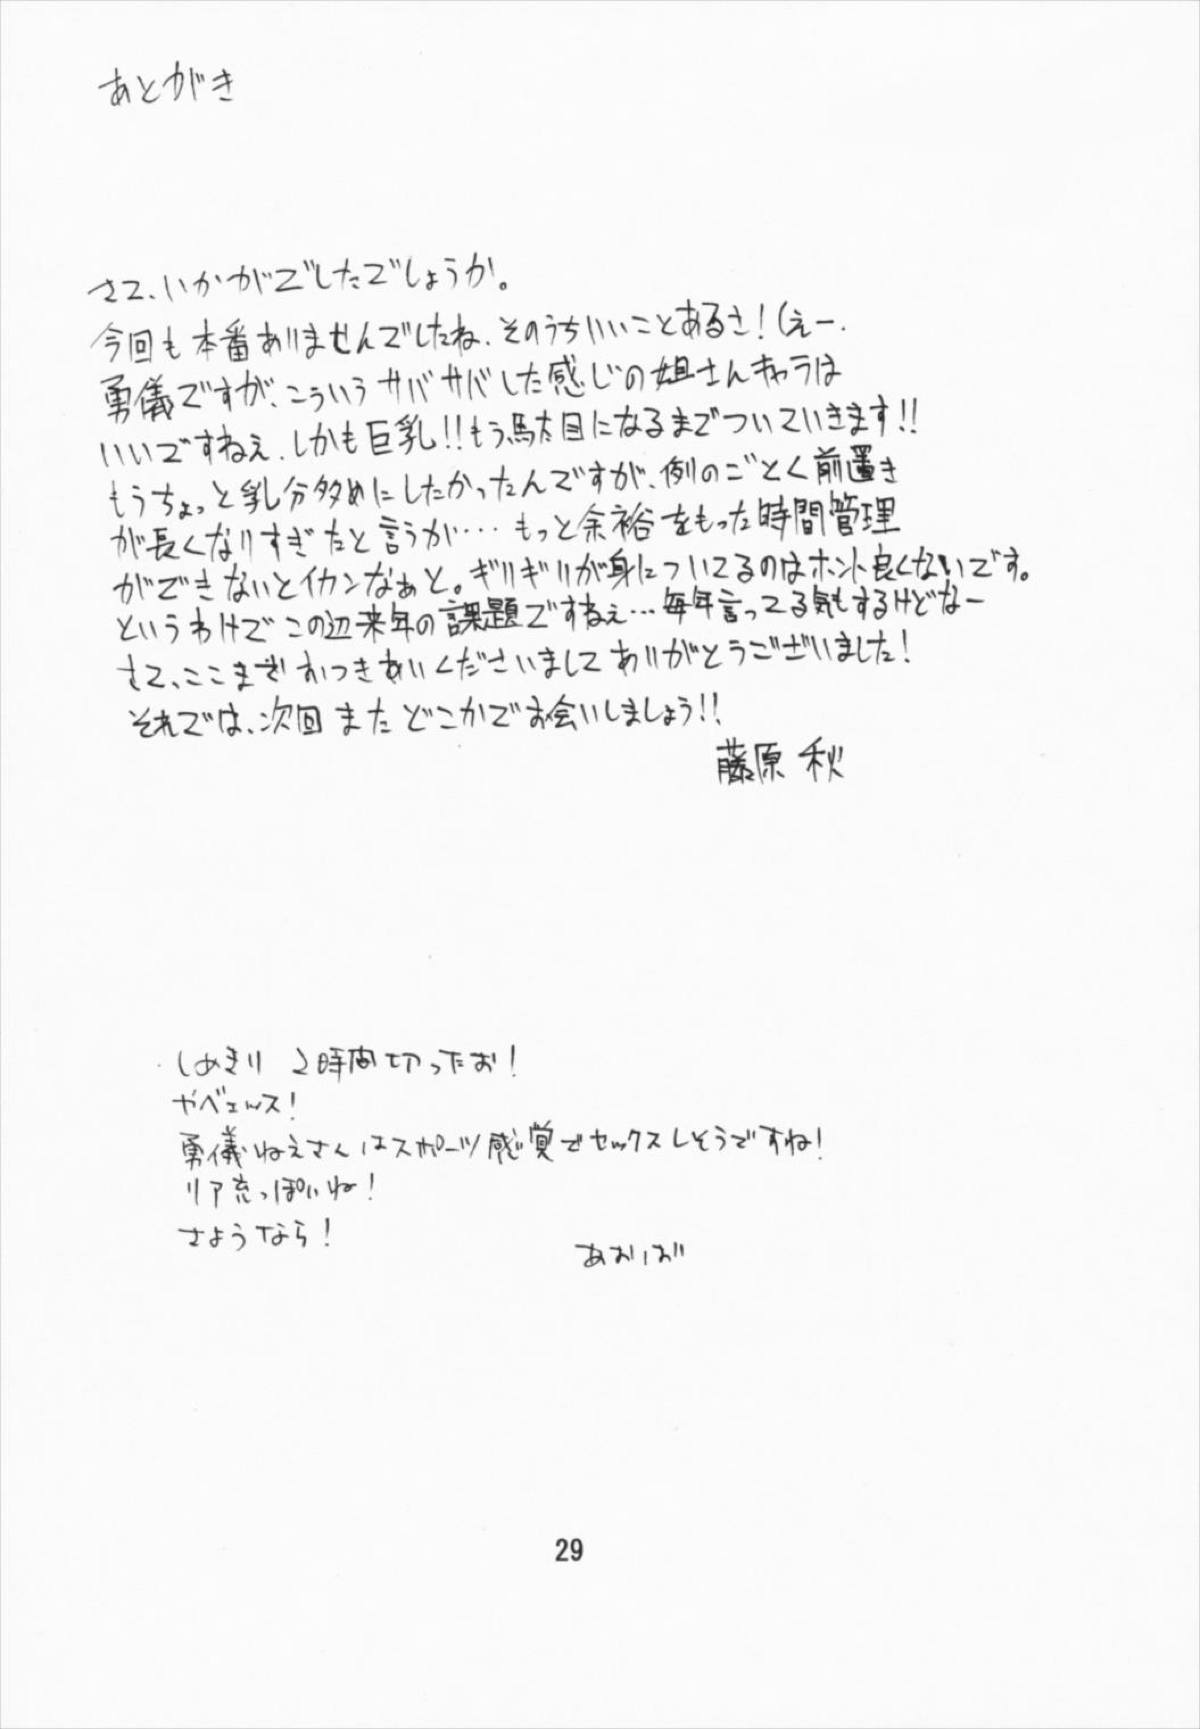 あとがき
さて、いかがでしたでしょうか。
今回も本番ありませんでしたね、そのうちいいことあるさ!(えー.
勇儀ですが、こういうサバサバした感じの姐さんキャラは
いいですねぇ、しかも巨乳!!もう駄目になるまでついていきます!!
もうちょっと乳分多めにしたかったんですが、例のごとく前置き
が長くなりすぎたと言うか…もっと余裕をもった時間管理
ができないとイカンなぁと。ギリギリが身についてるのはホント良くないです。
というわけでこの辺来年の課題ですねぇ…毎年言ってる気もするけどなー
さて、ここまでおつきあいくださいましてありがとうございました!
それでは、次回またどこかでお会いしましょう!!
藤原秋
しめきり 2時間切ったお!
やべェッス!
勇儀ねえさんはスポーツ感覚でセックスしそうですね!
リア充っぽいね!
さようなら!
あおいお
29